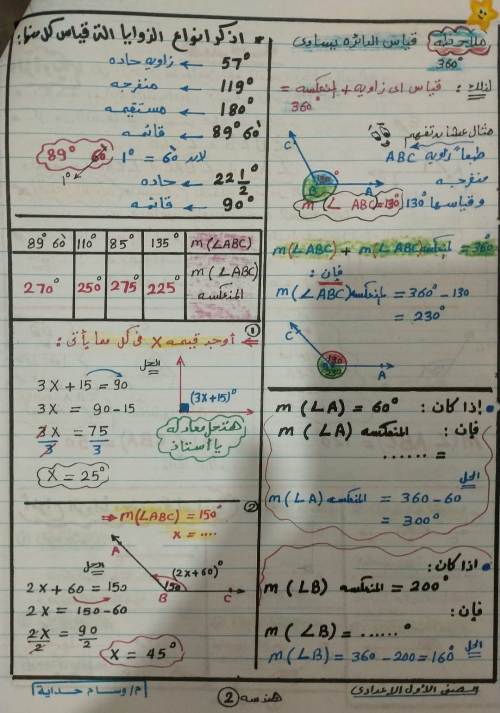 ملاحظة قياس الدائرة يساوى
360°
لذلك : قياس اى زاويه + المنعكسه =
360°
مثال عشان تفهم
طبعاً زاويه ABC
منفرجه
وقياسها 130°
m(∠ABC)=130°
C
130°
B
A
m(∠ABC) + m(∠ABC)المنعكسه = 360°
فإن :
m(∠ABC)المنعكسه = 360 - 130
= 230°
C
130
230
A
• إذا كان : m(∠A) = 60°
فإن : m(∠A) المنعكسه
= ......
الحل
m(∠A) المنعكسه = 360 - 60
= 300°
• اذا كان :
m(∠B) المنعكسه = 200°
فإن :
m(∠B) = ......°
الحل
m(∠B) = 360 - 200 = 160°
* اذكر انواع الزوايا التى قياس كل منها :
57° ← زاويه حاده
119° ← منفرجه
180° ← مستقيمه
89° 60' ← قائمه
لان 60' = 1°
89° 60'
1°
22 1/2° ← حاده
90° ← قائمه
89° 60' 110° 85° 135° m(∠ABC)
270° 250° 275° 225° m(∠ABC) المنعكسه
① ⇐ أوجد قيمه X فى كل مما يأتى :
الحل
(3X+15)°
3X + 15 = 90
3X = 90 - 15
3X/3 = 75/3
X = 25°
هنحل معادله
يا أستاذ
②
⇒ m(∠ABC) = 150°
x = ....
A
الحل
(2X+60)°
150
B
C
2X + 60 = 150
2X = 150 - 60
2X/2 = 90/2
X = 45°
الصف الأول الإعدادى
هندسه ②
م/ وسام حداية